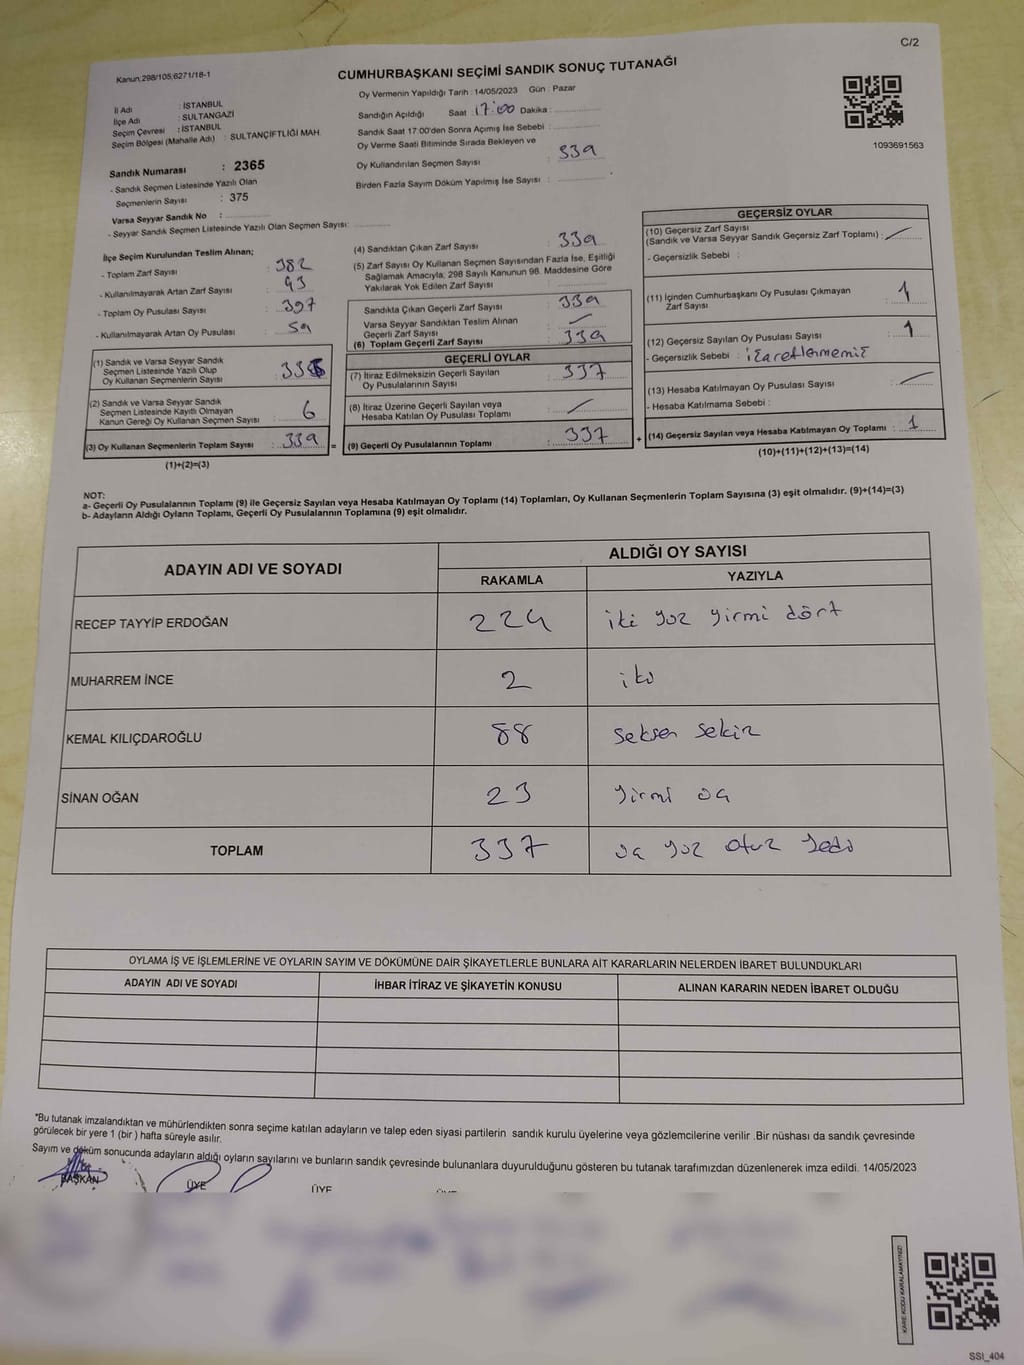 C/2
Kanun:298/105;6271/18-1
CUMHURBAŞKANI SEÇİMİ SANDIK SONUÇ TUTANAĞI
İl Adı : İSTANBUL
İlçe Adı : SULTANGAZİ
Seçim Çevresi : İSTANBUL
Seçim Bölgesi (Mahalle Adı) : SULTANÇİFTLİĞİ MAH.
Sandık Numarası : 2365
- Sandık Seçmen Listesinde Yazılı Olan
Seçmenlerin Sayısı : 375
Varsa Seyyar Sandık No :
- Seyyar Sandık Seçmen Listesinde Yazılı Olan Seçmen Sayısı:
Oy Vermenin Yapıldığı Tarih : 14/05/2023 Gün : Pazar
Sandığın Açıldığı Saat : 17:00 Dakika :
Sandık Saat 17:00'den Sonra Açımış İse Sebebi :
Oy Verme Saati Bitiminde Sırada Bekleyen ve
Oy Kullandırılan Seçmen Sayısı : 339
Birden Fazla Sayım Döküm Yapılmış İse Sayısı :
1093691563
İlçe Seçim Kurulundan Teslim Alınan;
- Toplam Zarf Sayısı : 382
- Kullanılmayarak Artan Zarf Sayısı : 43
- Toplam Oy Pusulası Sayısı : 397
- Kullanılmayarak Artan Oy Pusulası : 59
(1) Sandık ve Varsa Seyyar Sandık
Seçmen Listesinde Yazılı Olup
Oy Kullanan Seçmenlerin Sayısı :
(2) Sandık ve Varsa Seyyar Sandık
Seçmen Listesinde Kayıtlı Olmayan
Kanun Gereği Oy Kullanan Seçmen Sayısı : 6
(3) Oy Kullanan Seçmenlerin Toplam Sayısı : 339 =
(1)+(2)=(3)
(4) Sandıktan Çıkan Zarf Sayısı : 339
(5) Zarf Sayısı Oy Kullanan Seçmen Sayısından Fazla İse, Eşitliği
Sağlamak Amacıyla, 298 Sayılı Kanunun 98. Maddesine Göre
Yakılarak Yok Edilen Zarf Sayısı :
Sandıkta Çıkan Geçerli Zarf Sayısı : 339
Varsa Seyyar Sandıktan Teslim Alınan
Geçerli Zarf Sayısı :
(6) Toplam Geçerli Zarf Sayısı : 339
GEÇERLİ OYLAR
(7) İtiraz Edilmeksizin Geçerli Sayılan
Oy Pusulalarının Sayısı : 337
(8) İtiraz Üzerine Geçerli Sayılan veya
Hesaba Katılan Oy Pusulası Toplamı :
(9) Geçerli Oy Pusulalarının Toplamı : 337 +
GEÇERSİZ OYLAR
(10) Geçersiz Zarf Sayısı
(Sandık ve Varsa Seyyar Sandık Geçersiz Zarf Toplamı) :
- Geçersizlik Sebebi :
(11) İçinden Cumhurbaşkanı Oy Pusulası Çıkmayan
Zarf Sayısı : 1
(12) Geçersiz Sayılan Oy Pusulası Sayısı : 1
- Geçersizlik Sebebi :
(13) Hesaba Katılmayan Oy Pusulası Sayısı :
- Hesaba Katılmama Sebebi :
(14) Geçersiz Sayılan veya Hesaba Katılmayan Oy Toplamı : 1
(10)+(11)+(12)+(13)=(14)
NOT:
a- Geçerli Oy Pusulalarının Toplamı (9) ile Geçersiz Sayılan veya Hesaba Katılmayan Oy Toplamı (14) Toplamları, Oy Kullanan Seçmenlerin Toplam Sayısına (3) eşit olmalıdır. (9)+(14)=(3)
b- Adayların Aldığı Oyların Toplamı, Geçerli Oy Pusulalarının Toplamına (9) eşit olmalıdır.
ADAYIN ADI VE SOYADI ALDIĞI OY SAYISI
RAKAMLA YAZIYLA
RECEP TAYYİP ERDOĞAN 224 iki yüz yirmi dört
MUHARREM İNCE 2 iki
KEMAL KILIÇDAROĞLU 88 seksen sekiz
SİNAN OĞAN 23 yirmi üç
TOPLAM 337 üç yüz otuz yedi
OYLAMA İŞ VE İŞLEMLERİNE VE OYLARIN SAYIM VE DÖKÜMÜNE DAİR ŞİKAYETLERLE BUNLARA AİT KARARLARIN NELERDEN İBARET BULUNDUKLARI
ADAYIN ADI VE SOYADI İHBAR İTİRAZ VE ŞİKAYETİN KONUSU ALINAN KARARIN NEDEN İBARET OLDUĞU
*Bu tutanak imzalandıktan ve mühürlendikten sonra seçime katılan adayların ve talep eden siyasi partilerin sandık kurulu üyelerine veya gözlemcilerine verilir .Bir nüshası da sandık çevresinde
görülecek bir yere 1 (bir ) hafta süreyle asılır.
Sayım ve döküm sonucunda adayların aldığı oyların sayılarını ve bunların sandık çevresinde bulunanlara duyurulduğunu gösteren bu tutanak tarafımızdan düzenlenerek imza edildi. 14/05/2023
BAŞKAN ÜYE ÜYE
KARE KODU KARALAMAYINIZ!
SSI_404